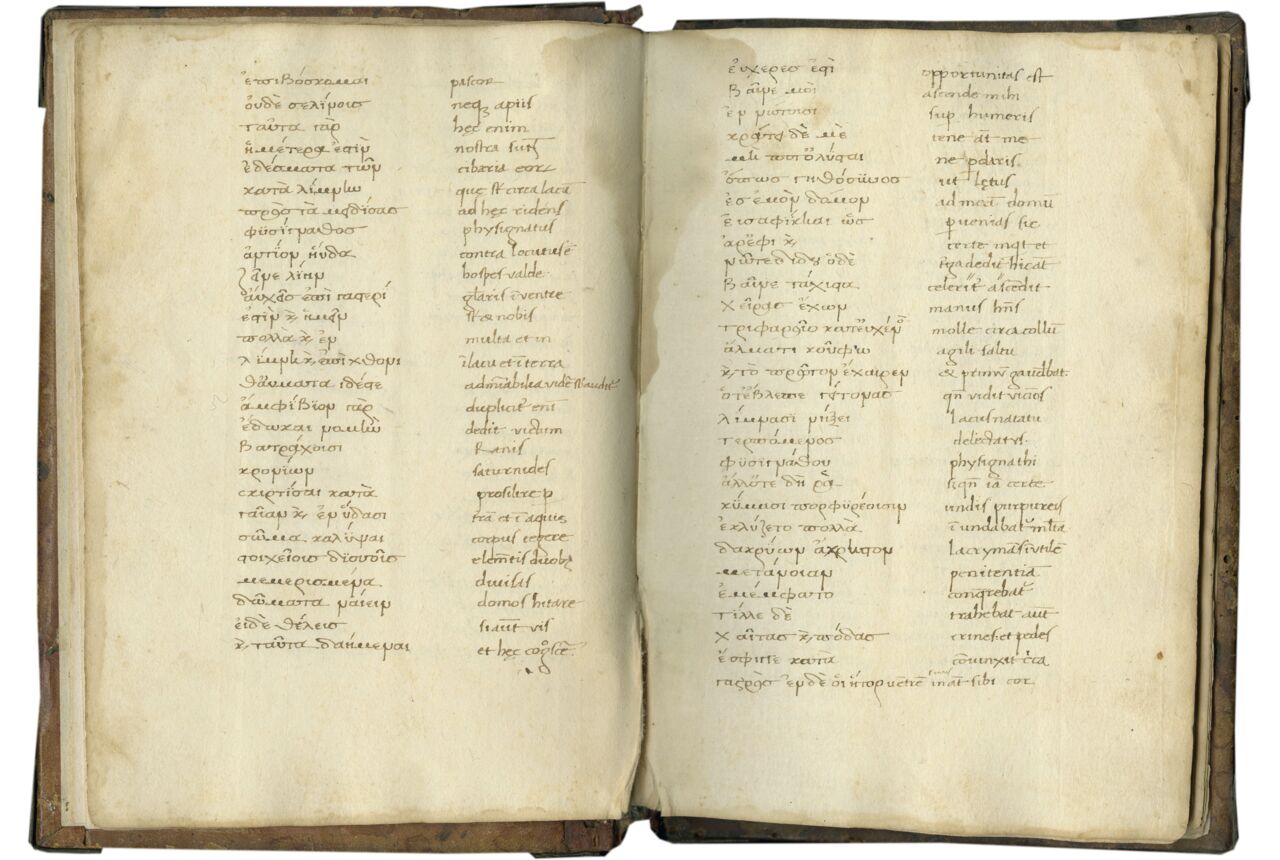 ἐπιβόσκομαι pascor
οὐδὲ σελίνοις neq apiis
ταῦτα γὰρ hęc enim
ἡμέτερα ἐστὶν nostra sunt
ἐδέσματα τῶν cibaria eorum
κατὰ λίμνην que st circa lacū
πρὸς τὰ μειδίσας ad hęc ridens
φυσίγναθος physignatus
ἀντίον ηὔδα contra locutus ē
ξεῖνε λίην hospes valde
αὐχεῖς ἐπὶ γαστέρι glaris ī ventre
ἐστὶν κ ἡμῖν st & nobis
πολλὰ κ ἐν multa et in
λίμνη κ ἐπὶ χθονὶ ī lacu et ī terra
θαύματα ἰδέσθαι admirabilia
ἀμφίβιον γὰρ duplicit enī
ἔδωκαι νομὴν dedit victum
Βατράχοισι Ranis
κρονίων saturnides
σκιρτῆσαι κατὰ prosilire p
γαῖαν κ ἐν ὕδασι trā et ī aquis
σῶμα καλύψαι corpus tegere
στοιχείοις δυσοῖς elemētis duobꝫ
μεμερισμένα divisas
δώματα ναίειν domos hitare
εἰδὲ θέλεις si aut vis
κ ταῦτα δαήμεναι et hęc cogscē
εὐχερές ἐστὶ opportunitas est
Βαῖνέ μοι ascende mihi
ἐν νώτοισι sup humeris
κράτει δὲ μὲ tene at me
μὴ ποτ ὀλύσαι ne pdaris
ὅππως γηθόσυνος ut lętus
ἐς ἐμὸν δόμον ad meā domū
εἰσαφίκηαι ὣς puenias sic
ἄρ ἔφη κ certe inqt et
νῶτ ἐδίδου ὁδὲ dedit hic at
Βαῖνε τάχιστα celerit ascēdit
Χεῖρας ἔχων manus hñs
τρυφεροῖο κατ αὐχένος molle circa collum
ἅλματι κούφω agili saltu
κ τὸ πρῶτον ἔχαιρεν & primū gaudebat
ὅτ ἔβλεπε γείτονας qñ vidit vicinos
λίμνασι νήξει lacus natatu
τερπόμενος delectatus
φυσιγνάθου physignathi
ἀλλ ὅτε δή ῥα s qñ iā certe
κύμασι πορφυρέοισιν undis purpureis
ἐκλύζετο πολλὰ īundabat multa
δακρύων ἄχρηστον lacrymans īutilē
μετάνοιαν penitentiā
ἐμέμφατο conqrebat
τίλλε δὲ trahebat aut
Χαίτας κ πόδας crines et pedes
ἔσφιγγε κατὰ cōvinxit circa
γαστρὸς ἐν δὲ οἱ ἦτορ ventrē in at sibi cor